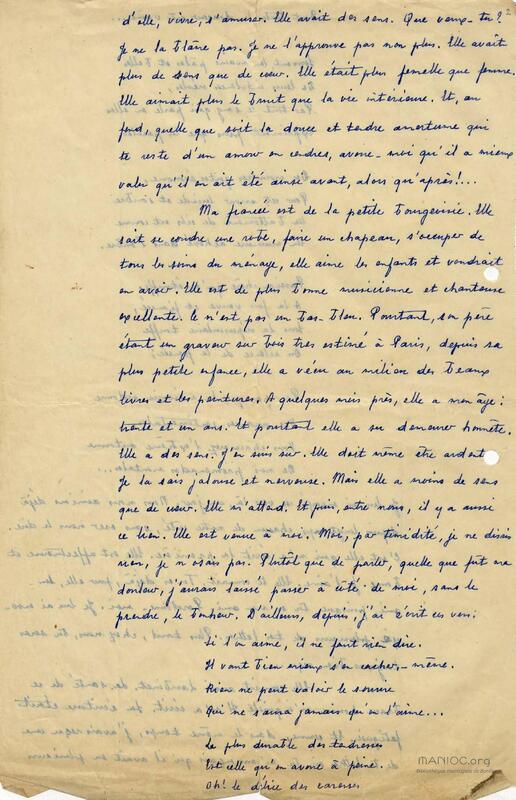 2
d'elle, vivre, s'amuser. Elle avait des sens. Que veux-tu?
Je ne la blâme pas. Je ne l'approuve pas non plus. Elle avait
plus de sens que de cœur. Elle était plus femelle que femme.
Elle aimait plus le bruit que la vie intérieure. Et, au
fond, quelle que soit la douce et tendre amertume qui
te reste d'un amour en cendres, avoue-moi qu'il a mieux
valu qu'il en ait été ainsi avant, alors qu'après!...
Ma fiancée est de la petite bourgeoisie. Elle
sait se coudre une robe, faire un chapeau, s'occuper de
tous les soins du ménage, elle aime les enfants et voudrait
en avoir. Elle est de plus bonne musicienne et chanteuse
excellente. Ce n'est pas un bas-bleu. Pourtant, son père
étant un graveur sur bois très estimé à Paris, depuis sa
plus petite enfance, elle a vécu au milieu des beaux
livres et les peintures. A quelques mois près, elle a mon âge:
trente et un ans. Et pourtant elle a su demeurer honnête.
Elle a des sens. J'en suis sûr. Elle doit même être ardente
Je la sais jalouse et nerveuse. Mais elle a moins de sens
que de cœur. Elle m'attend. Et puis, entre nous, il y a aussi
ce lien. Elle est venue à moi. Moi, par timidité, je ne disais
rien, je n'osais pas. Plutôt que de parler, quelle que fût ma
douleur, j'aurais laissé passer à côté de moi, sans le
prendre, le bonheur. D'ailleurs, depuis, j'ai écrit ces vers:
Si l'on aime, il ne faut rien dire.
Il vaut bien mieux s'en cacher, même.
Rien ne peut valoir le sourire
Qui ne saura jamais qu'on l'aime...
La plus durable des tendresses
Est celle qu'on avoue à peine.
Oh! le délice des caresses
MANIOC.org